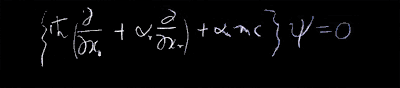 {iħ(∂/∂x₀ + αᵣ ∂/∂xᵣ) + αₘ mc}ψ = 0